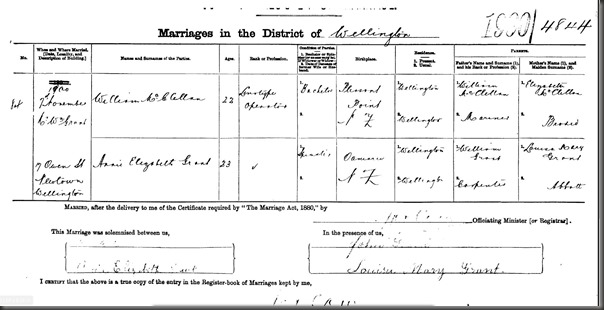 Marriages in the District of Wellington
1900/4844
No.
When and Where Married. (Date, Locality, and Description of Building.)
Name and Surname of the Parties.
Ages.
Rank or Profession.
Condition of Parties.
Birthplace.
Residence.
1. Present.
2. Usual.
PARENTS.
Father's Name and Surname (1), and his Rank or Profession (2).
Mother's Name (1), and Maiden Surname (2).
1900
7 November
William McClellan
22
Linotype Operator
Bachelor
Pleasant Point
N Z
Wellington
Wellington
William McClellan
Mariner
Elizabeth McClellan
7 Owen St
Newtown
Wellington
Annie Elizabeth Grant
23
Oamaru
N Z
Wellington
Wellington
William Grant
Carpenter
Louisa Mary Grant
Abbott
MARRIED, after the delivery to me of the Certificate required by "The Marriage Act, 1880," by
Officiating Minister [or Registrar].
This Marriage was solemnised between us,
In the presence of us,
Elizabeth
John
Louisa Mary Grant.
I CERTIFY that the above is a true copy of the entry in the Register-book of Marriages kept by me,